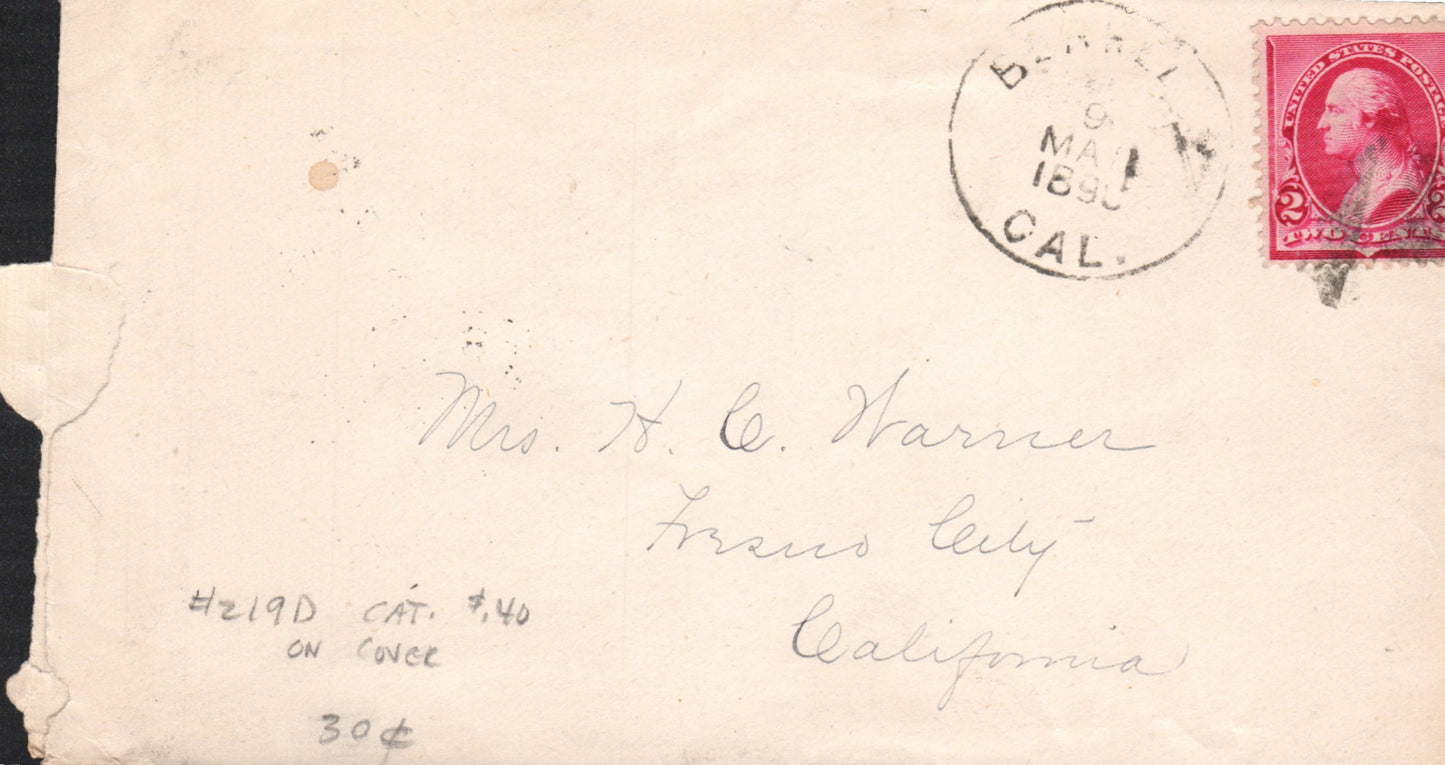 9
CAL.
UNITED STATES POSTAGE
2 2
TWO CENTS
Mrs. H. C. Warner
Fresno City
California
#219D CAT. $.40
ON COVER
30¢